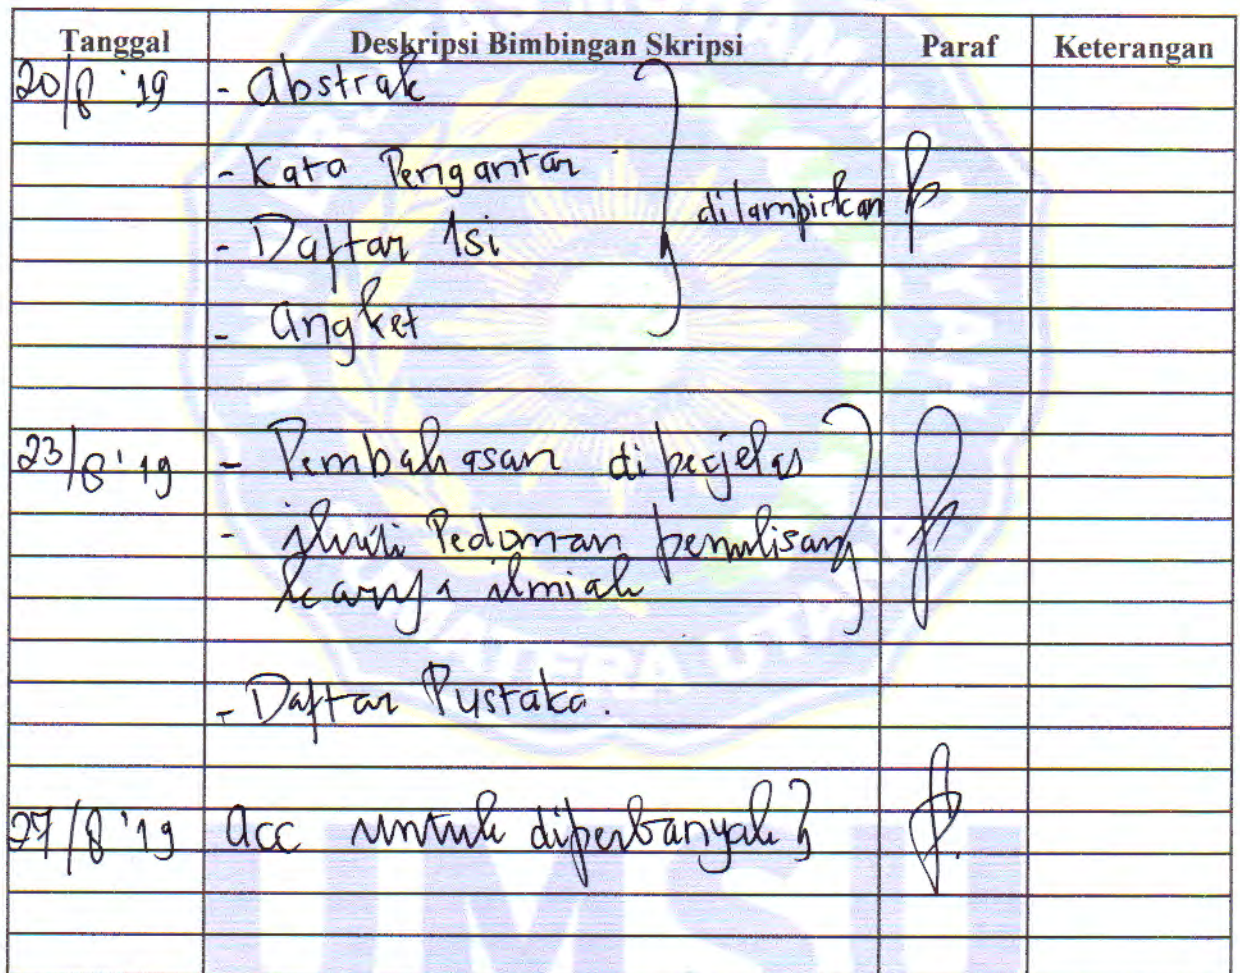 Tanggal Deskripsi Bimbingan Skripsi Paraf Keterangan
20/8 '19 - Abstrak
- Kata Pengantar
dilampirkan
- Daftar Isi
- Angket
23/8 '19 - Pembahasan diperjelas
- ikuti Pedoman penulisan
karya ilmiah
- Daftar Pustaka.
27/8 '19 Acc untuk diperbanyak
UMSU